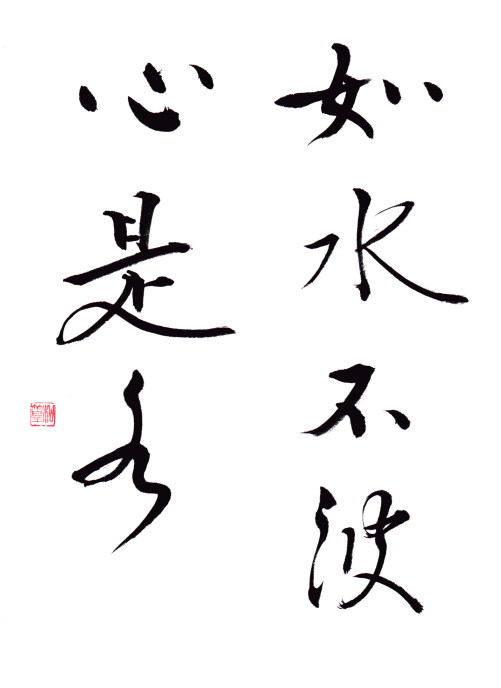 如水不波
心是水